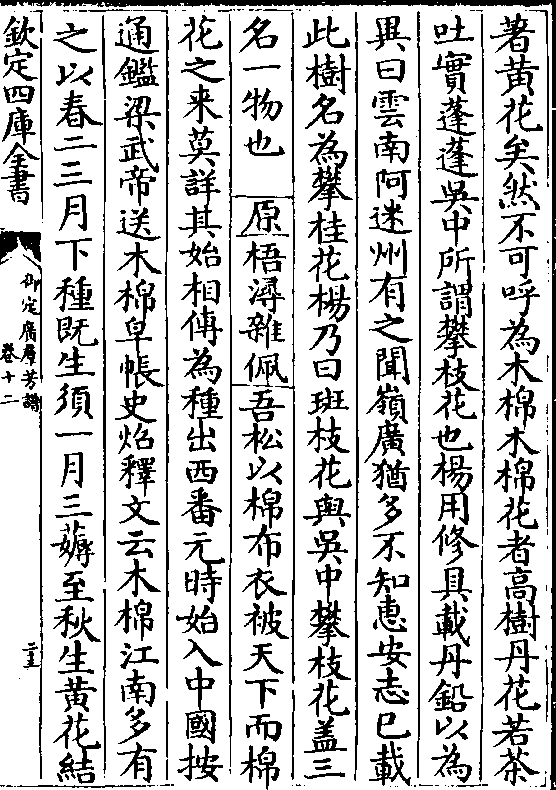 著黄花矣然不可呼為木棉木棉花者高樹丹花若茶
吐實蓬蓬吳中所謂攀枝花也楊用修具載丹鉛以為
異曰雲南阿迷州有之聞嶺廣猶多不知惠安志已載
此樹名為攀桂花楊乃曰斑枝花與吳中攀枝花盖三
名一物也 原梧潯雜佩吾松以棉布衣被天下而棉
花之来莫詳其始相傳為種出西番元時始入中國按
通鑑梁武帝送木棉皁帳史炤釋文云木棉江南多有
之以春二三月下種既生須一月三薅至秋生黄花結
欽定四庫全書
御定廣羣芳譜
卷十二
二十五